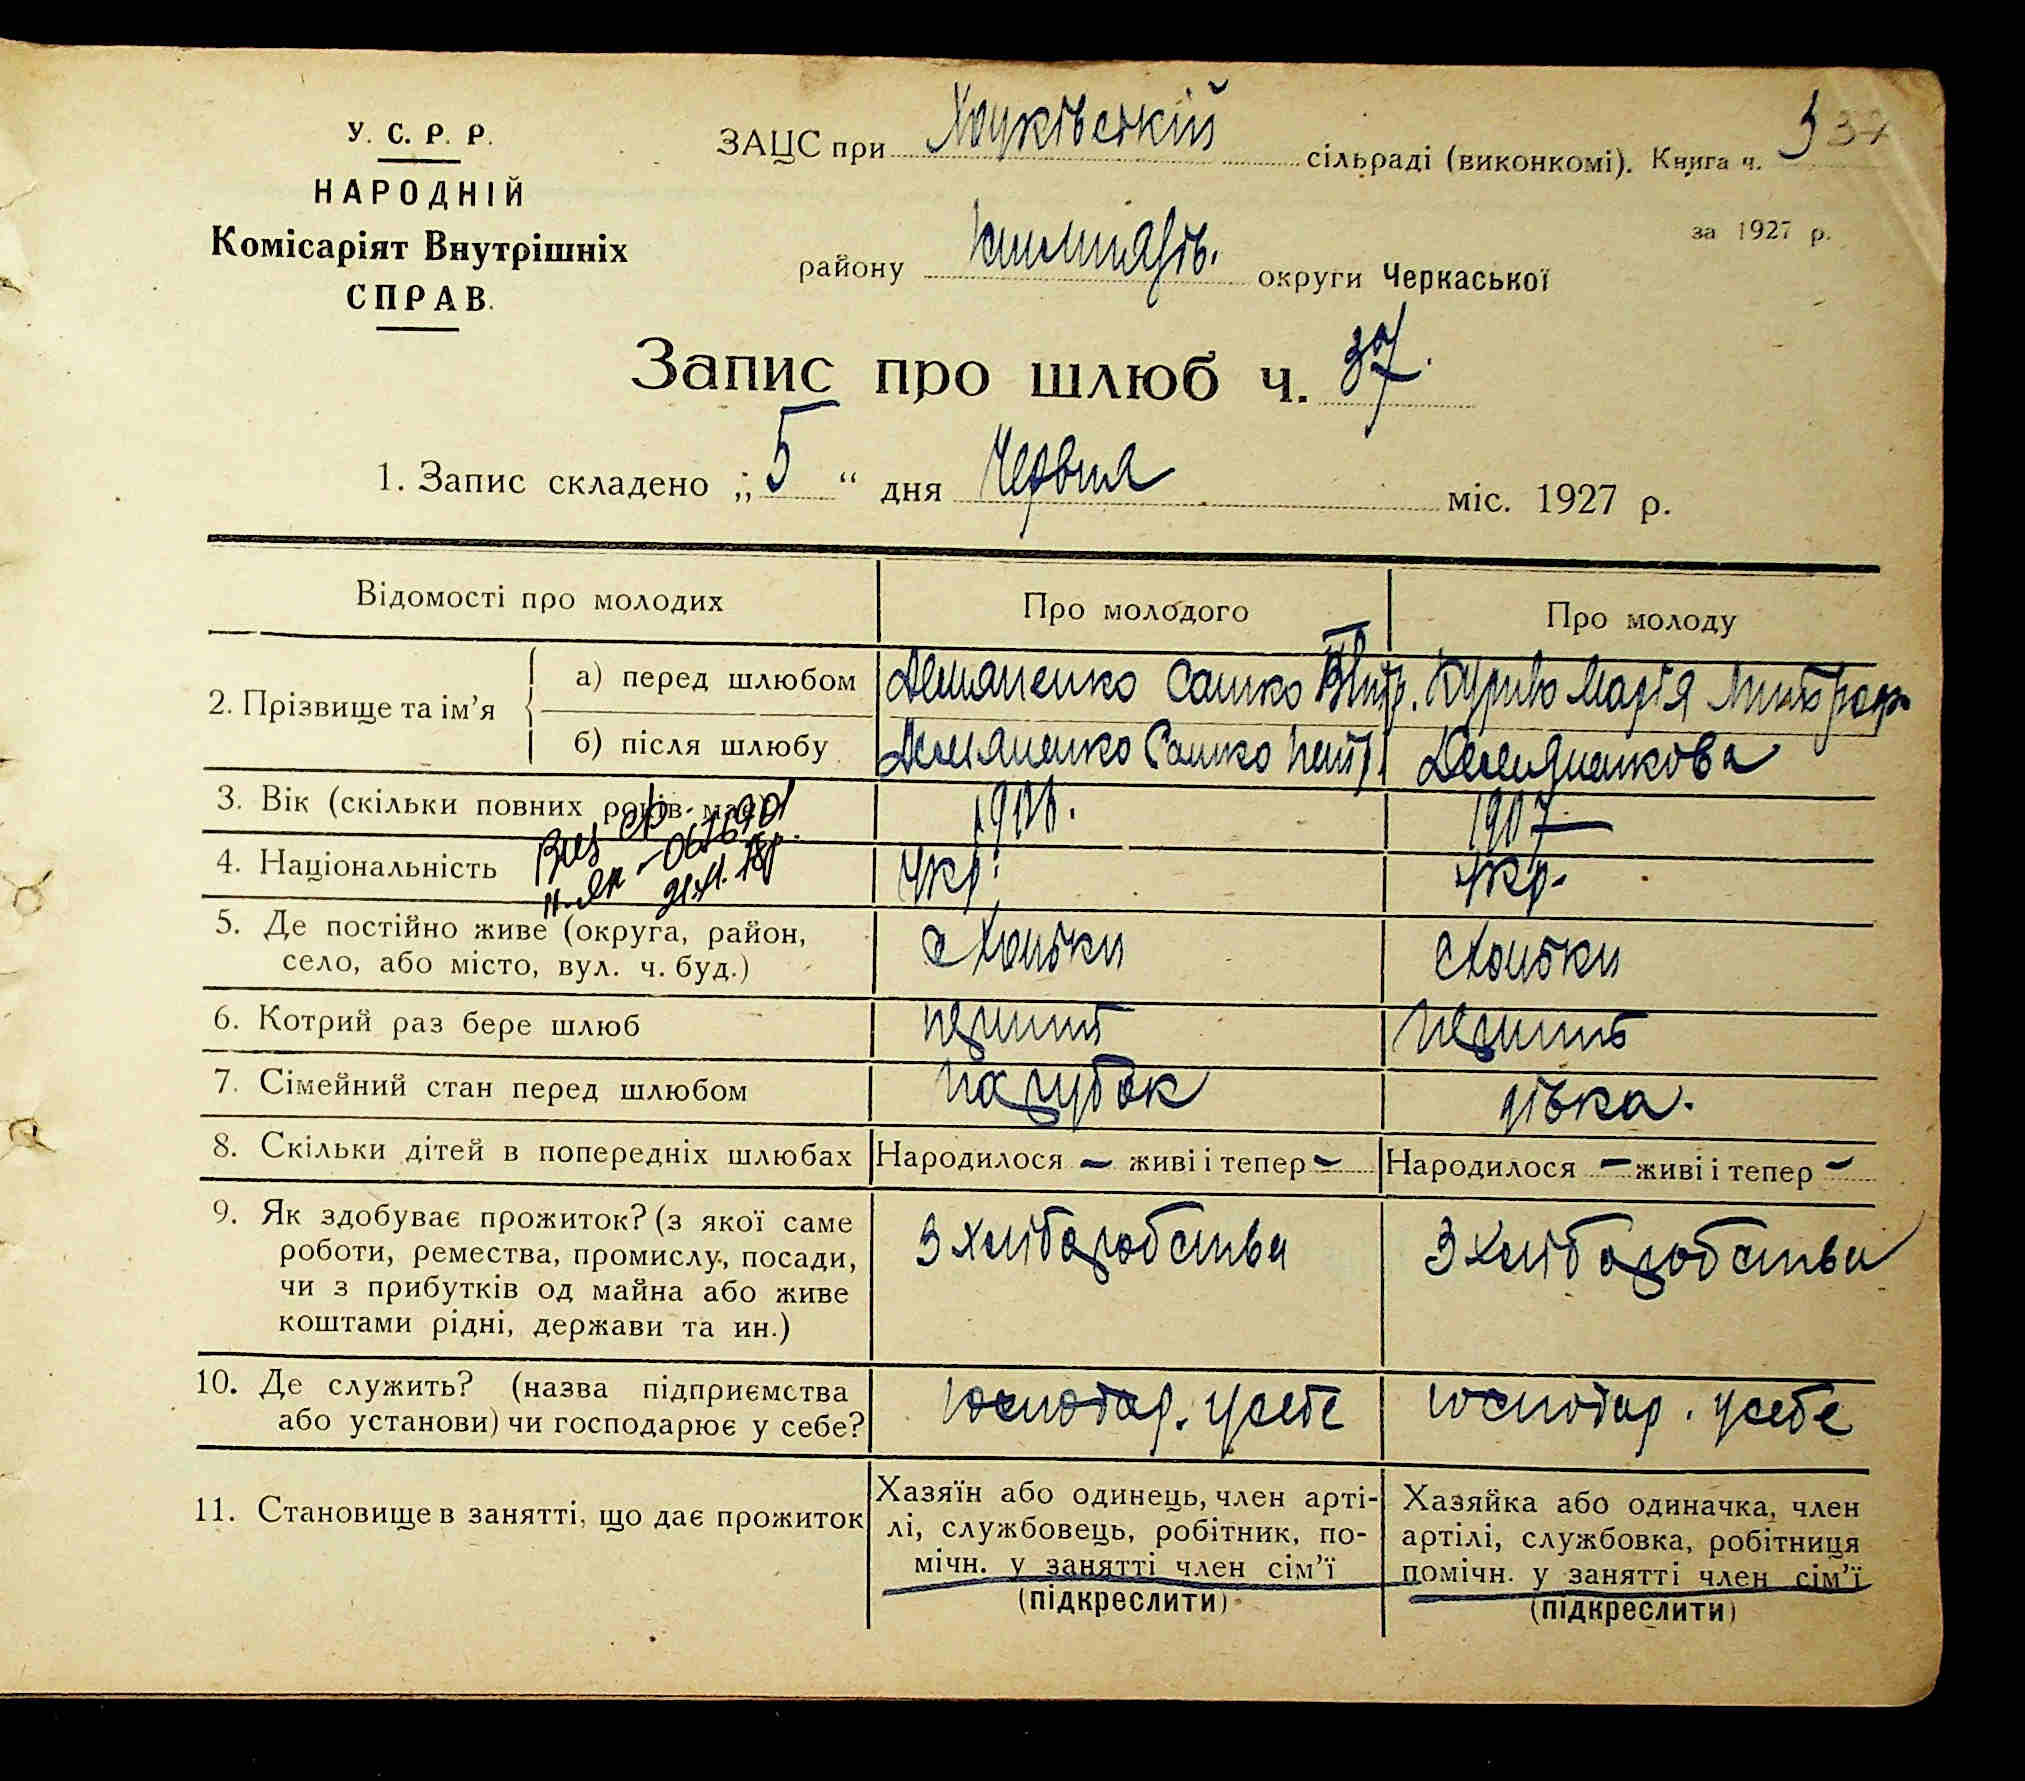 У. С. Р. Р.
НАРОДНІЙ
Комісаріят Внутрішніх
СПРАВ.
ЗАЦС при Хоцківській сільраді (виконкомі). Книга ч. 37
за 1927 р.
району округи Черкаської
Запис про шлюб ч. 37.
1. Запис складено „ 5 “ дня Червня міс. 1927 р.
Відомості про молодих Про молодого Про молоду
2. Прізвище та ім’я
а) перед шлюбом Демяненко Сашко Марія
б) після шлюбу Демяненко Сашко Демяненкова
3. Вік (скільки повних років має) 1907
4. Національність Укр. Укр.
5. Де постійно живе (округа, район,
село, або місто, вул. ч. буд.) с Хоцьки с Хоцьки
6. Котрий раз бере шлюб перший перший
7. Сімейний стан перед шлюбом парубок дівка.
8. Скільки дітей в попередніх шлюбах Народилося – живі і тепер – Народилося – живі і тепер –
9. Як здобуває прожиток? (з якої саме
роботи, ремества, промислу, посади,
чи з прибутків од майна або живе
коштами рідні, держави та ин.)
З хліборобства З хліборобства
10. Де служить? (назва підприємства
або установи) чи господарює у себе?
господар. у себе господар. у себе
11. Становище в занятті, що дає прожиток
Хазяїн або одинець, член арті-
лі, службовець, робітник, по-
мічн. у занятті член сім’ї
(підкреслити)
Хазяйка або одиначка, член
артілі, службовка, робітниця
помічн. у занятті член сім’ї
(підкреслити)